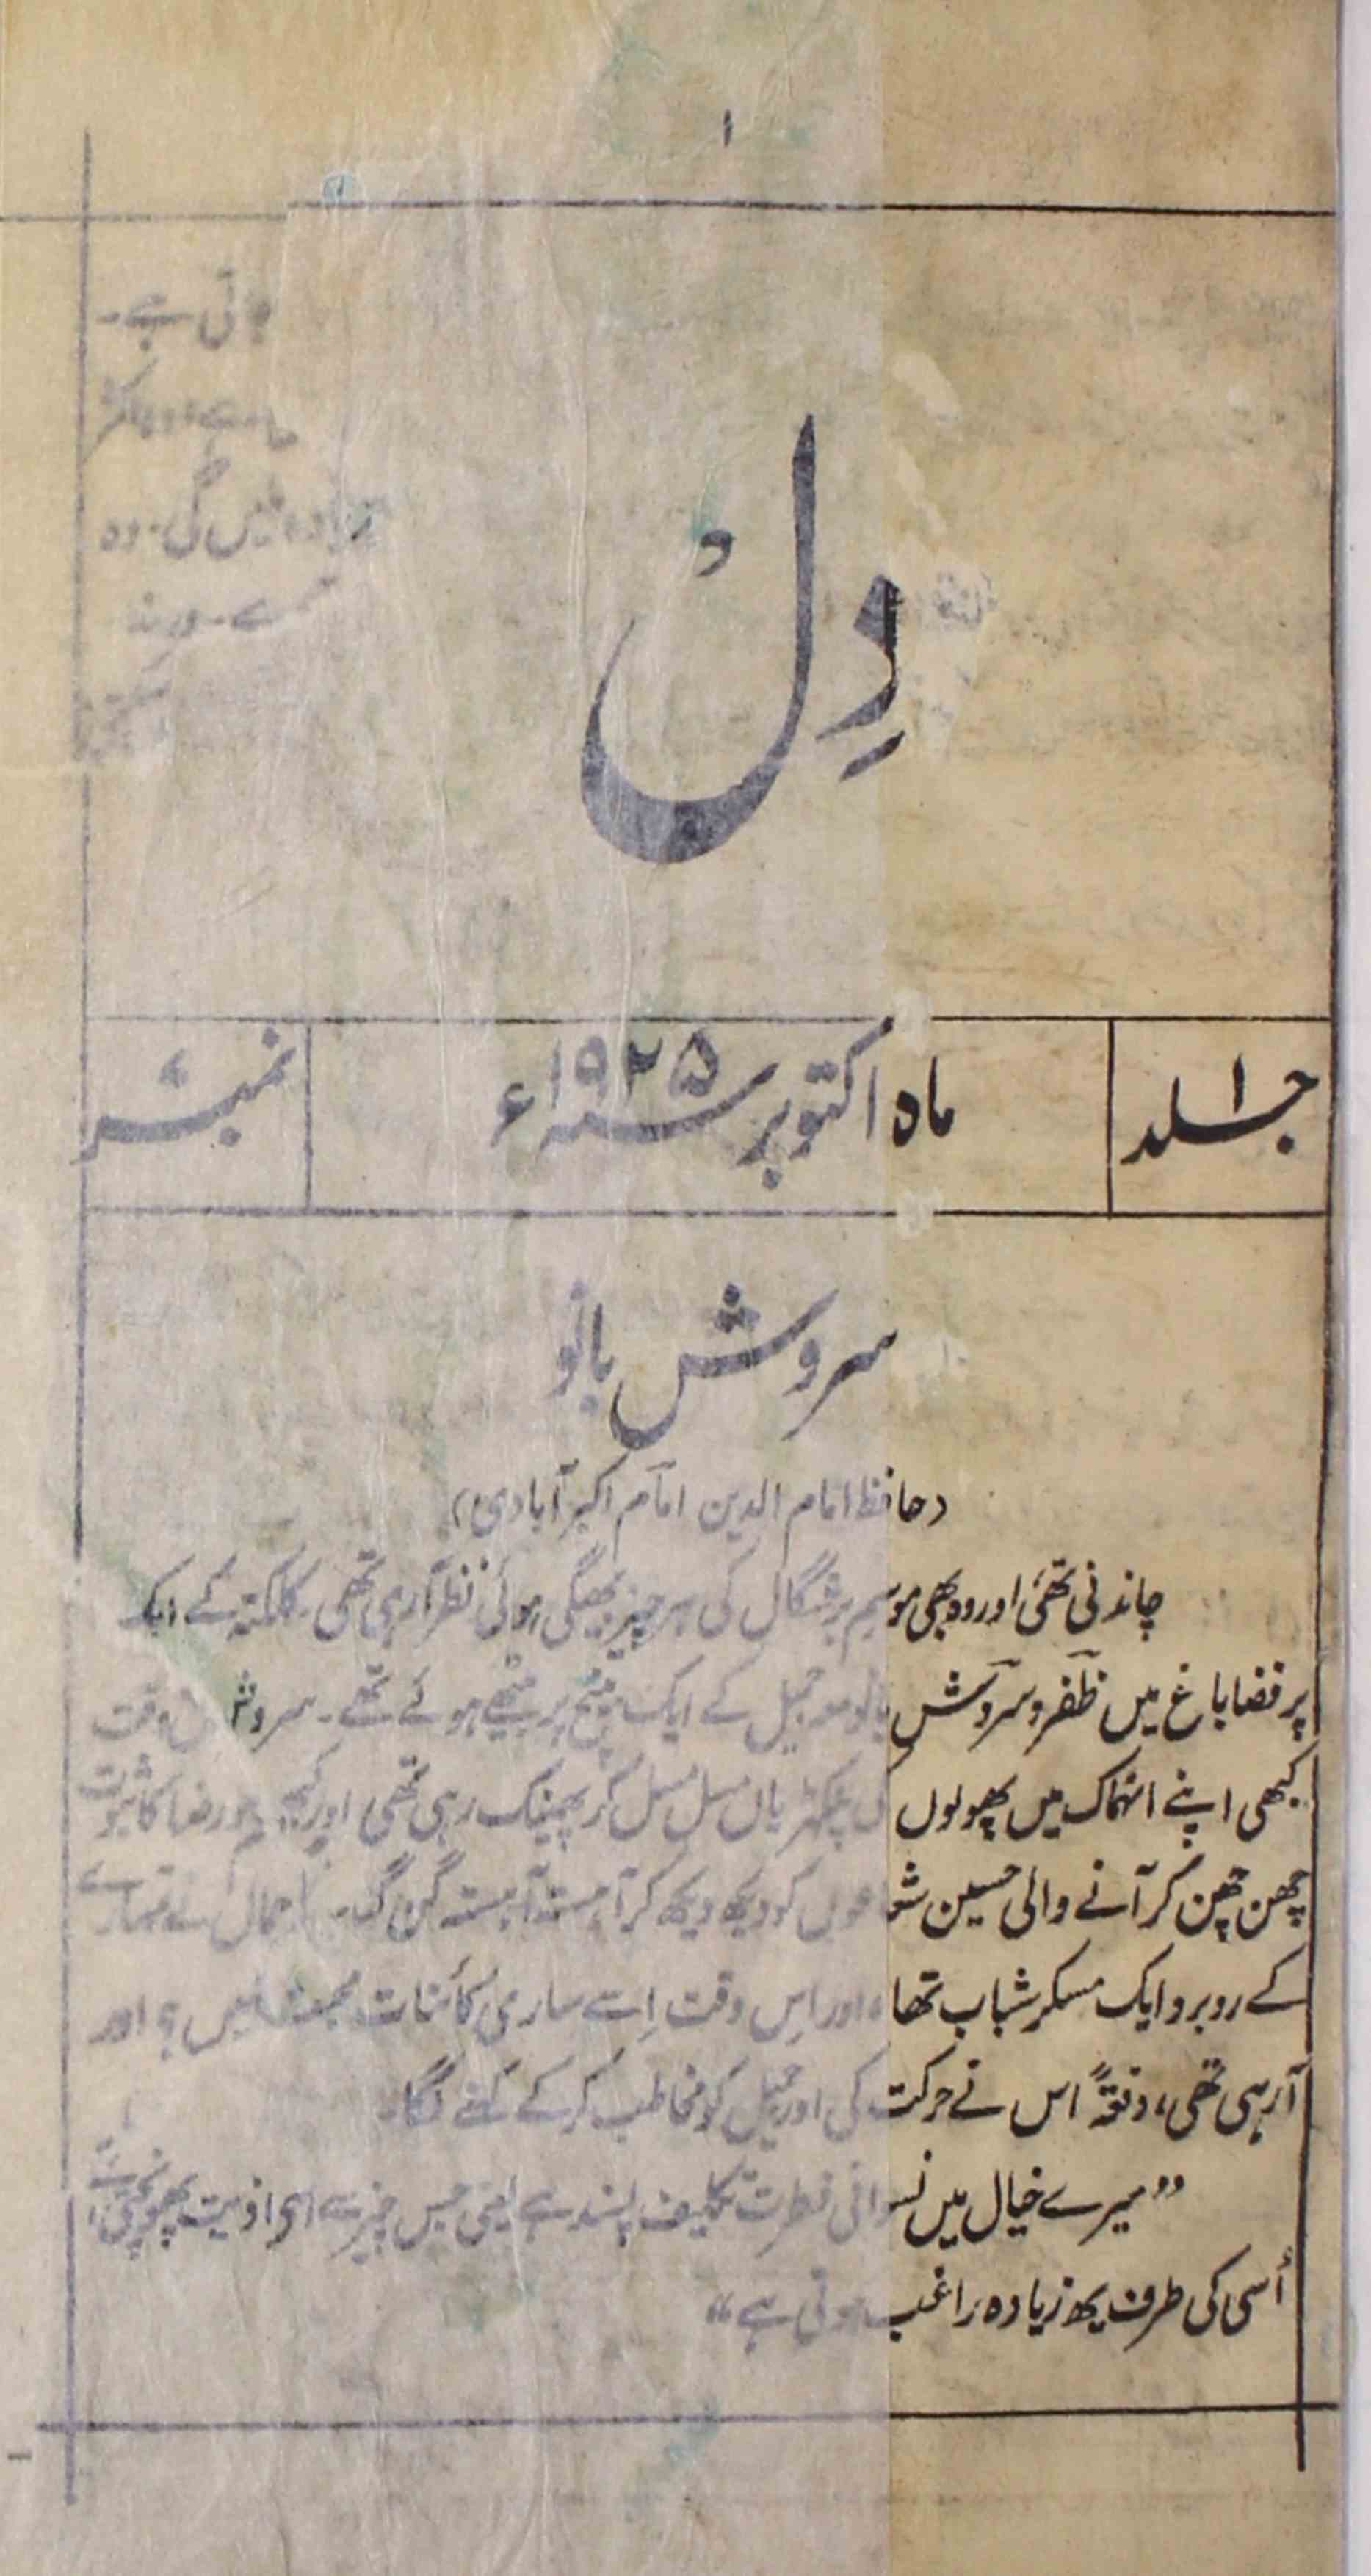 ۱
دِل
جلد ۱
ماہ اکتوبر سنہ ۱۹۲۵ء
نمبر
سروش بانو
(حافظ امام الدین امام اکبر آبادی)
چاندنی تھی، اور وہ بھی موسم برشگال کی ہر چیز بھیگی ہوئی نظر آرہی تھی۔ کلکتہ کے ایک
پر فضا باغ میں ظفر و سروش بانو معہ جمیل کے ایک بنچ پر بیٹھے ہوئے تھے۔ سروش وقت
کبھی اپنے انہماک میں پھولوں کی پنکھڑیاں مسل مسل کر پھینک رہی تھی اور کبھی
چھن چھن کر آنے والی حسین شعاعوں کو دیکھ دیکھ کر آہستہ آہستہ
کے روبرو ایک مسکر شباب تھا، اور اس وقت اِسے ساری کائنات
آرہی تھی، دفعۃً اس نے حرکت کی اور جمیل کو مخاطب کر کے کہنے لگا۔
”میرے خیال میں نسوانی فطرت تکلیف پسند ہے یعنی جس چیز سے اسکو اذیت پہونچتی
اُسی کی طرف یہ زیادہ راغب ہوتی ہے“
جاتی ہے۔
گی۔ وہ
ورنہ